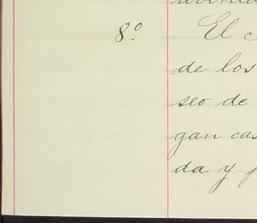 8.º
El
de los
seo de
gan cas
da y